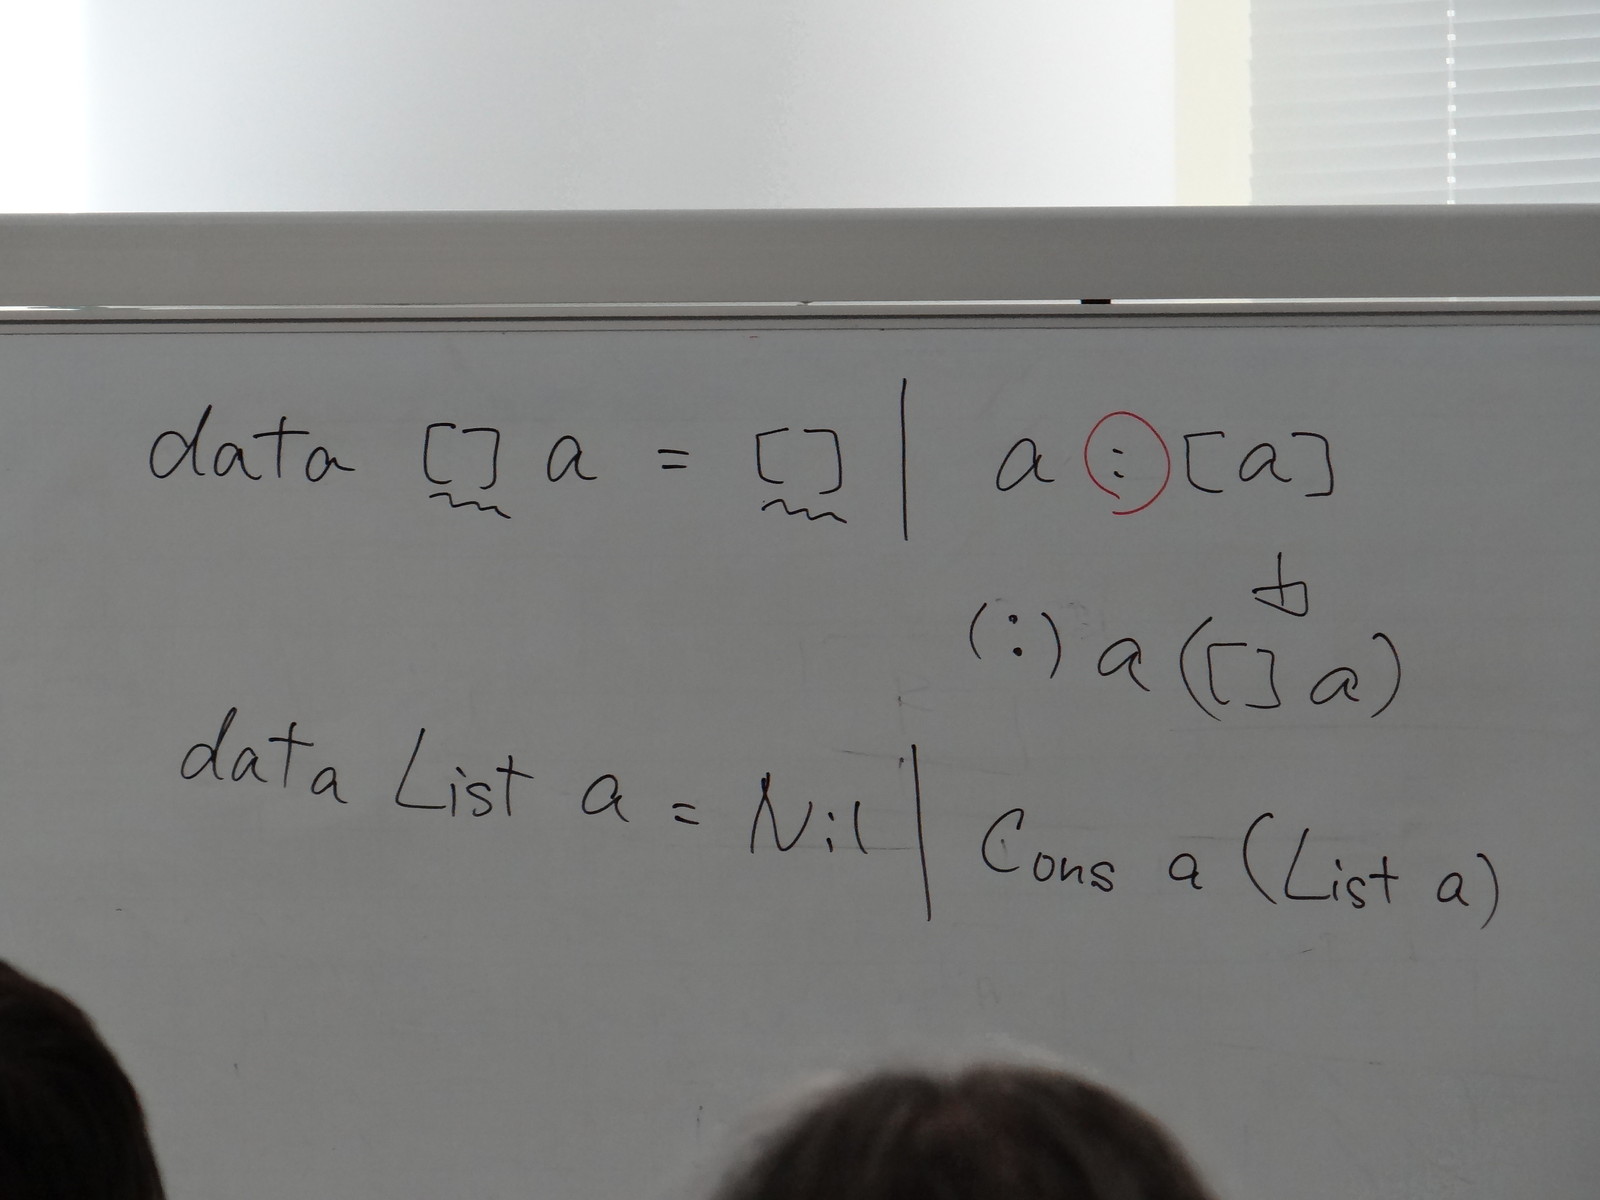 data [] a = [] | a : [a]
(:) a ([] a)
data List a = Nil | Cons a (List a)